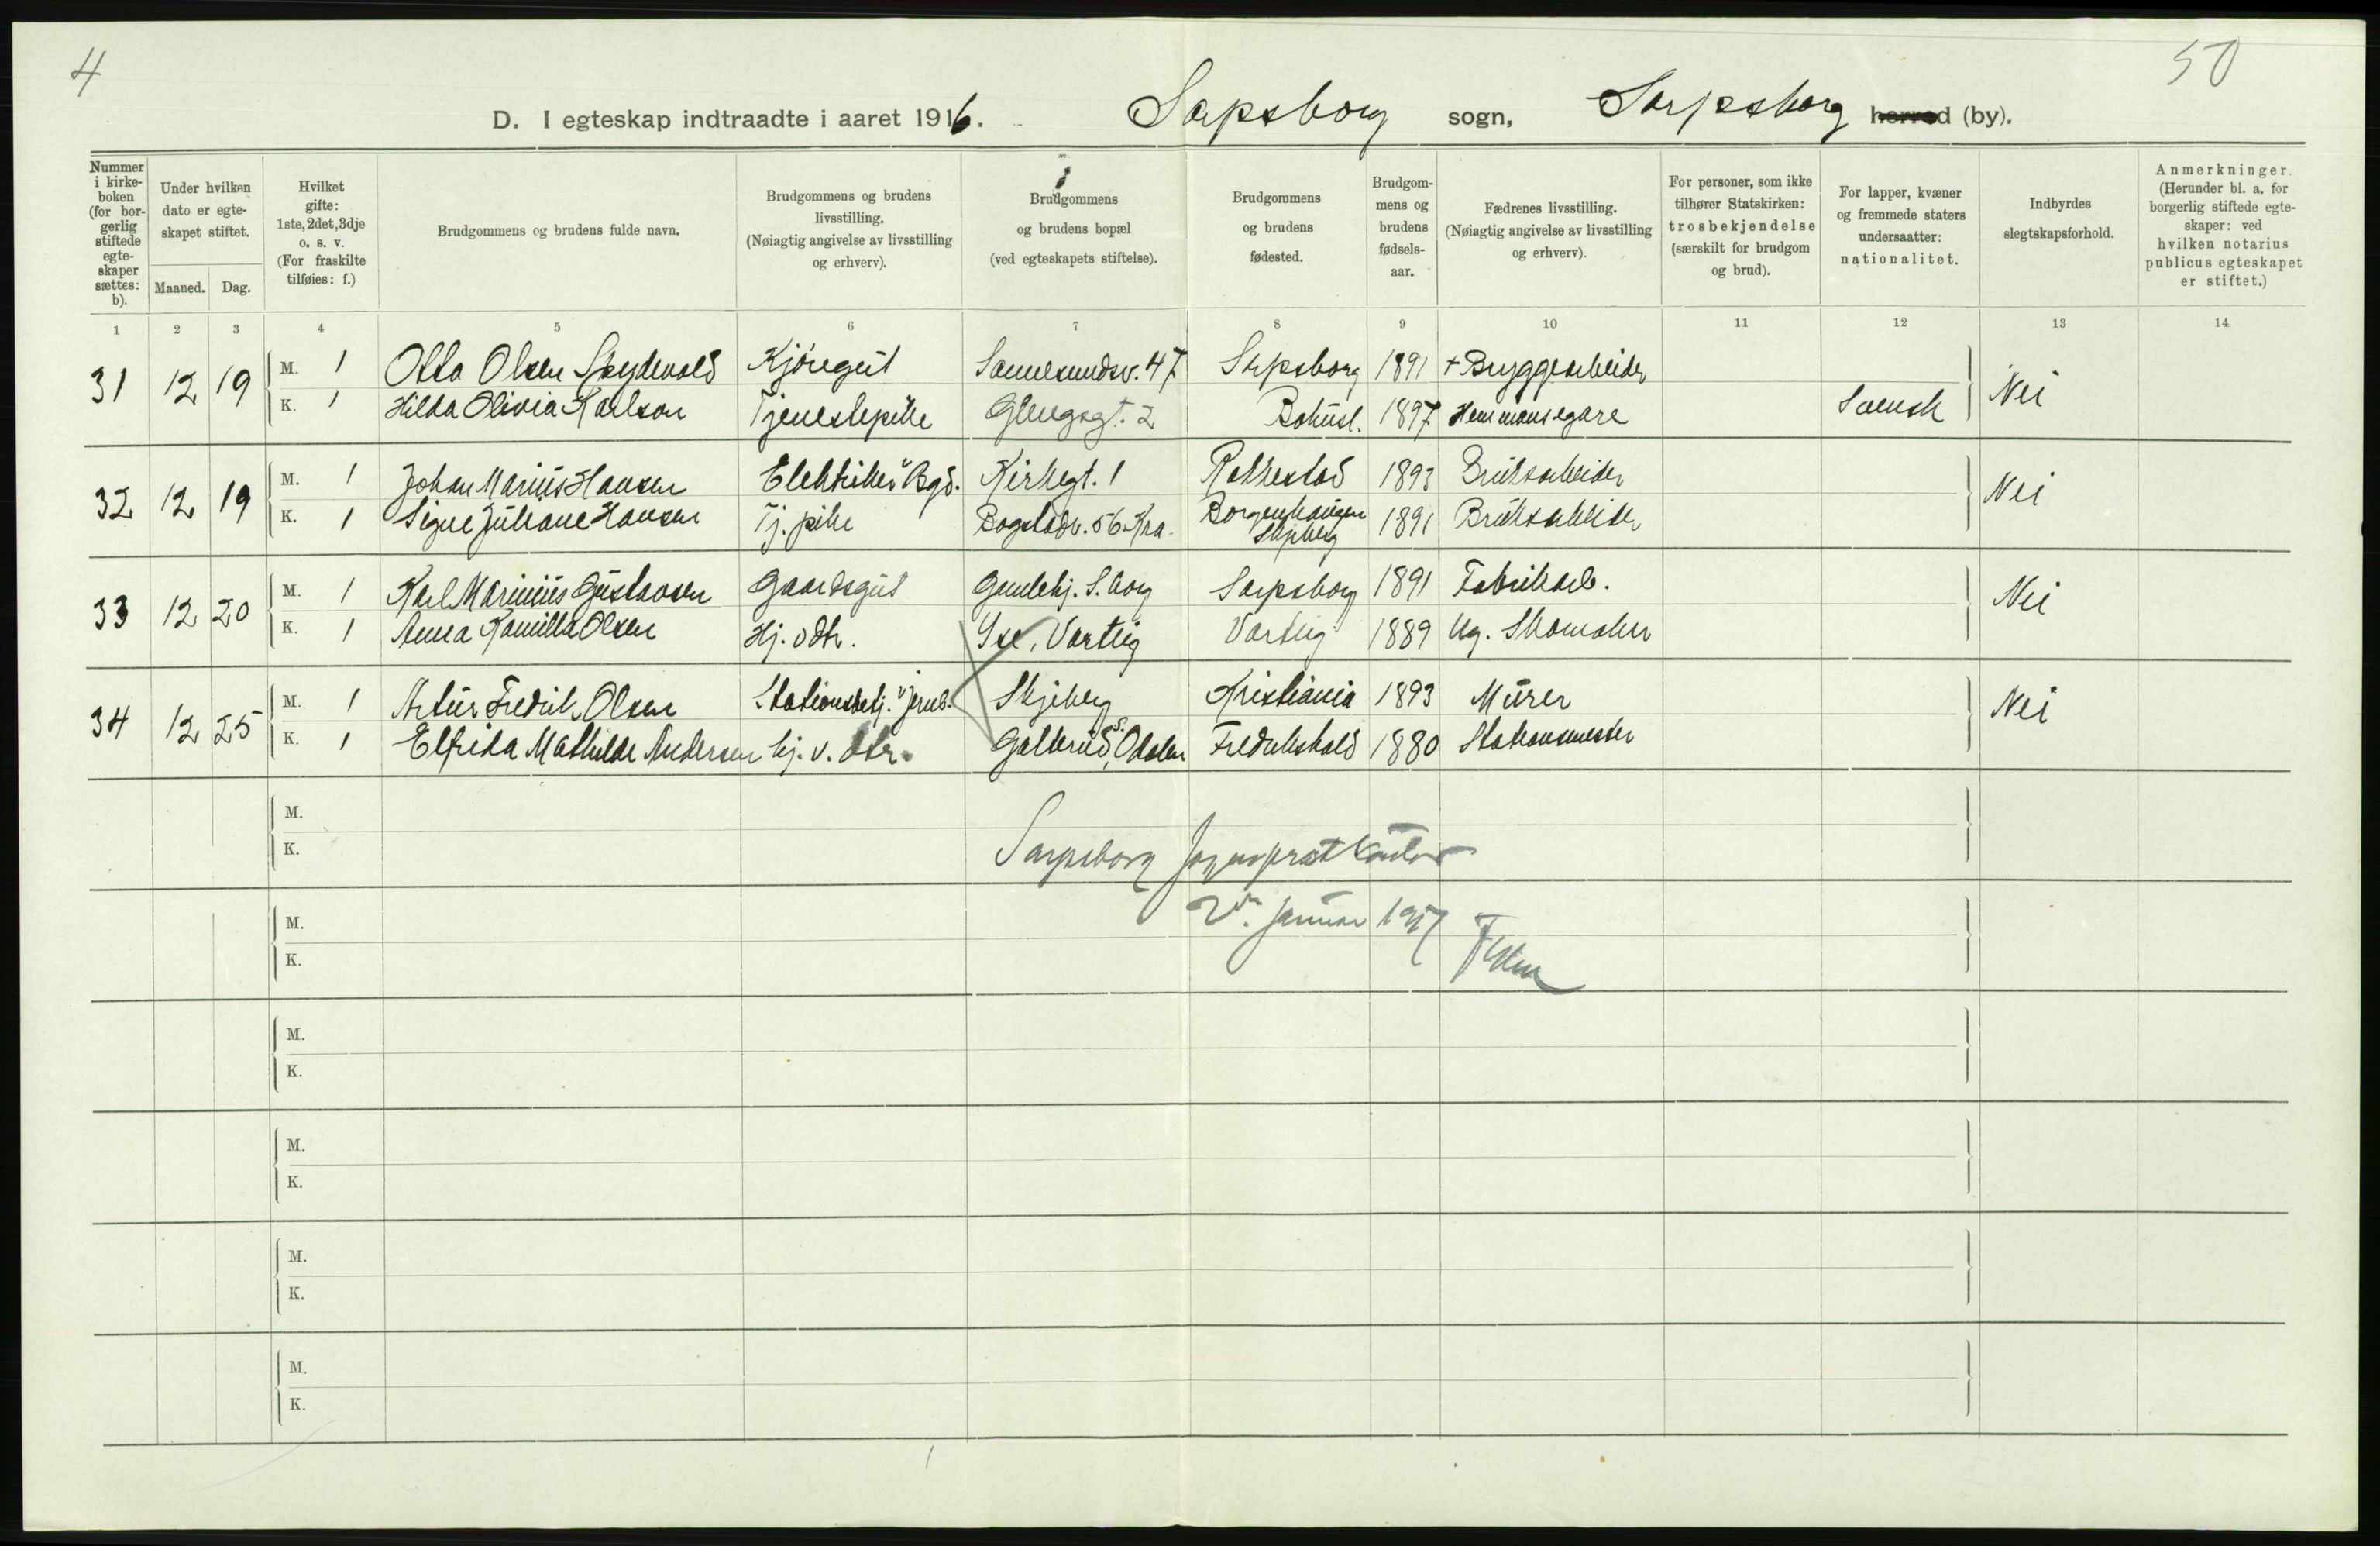 4
50
D. I egteskap indtraadte i aaret 1916. Sarpsborg sogn, Sarpsborg herred (by).
Nummer i kirke-boken (for bor-gerlig stiftede egte-skaper sættes: b).
Under hvilken dato er egte-skapet stiftet.
Maaned. Dag.
Hvilket gifte: 1ste, 2det, 3dje o. s. v. (For fraskilte tilføies: f.)
Brudgommens og brudens fulde navn.
Brudgommens og brudens livsstilling. (Nøiagtig angivelse av livsstilling og erhverv).
Brudgommens og brudens bopæl (ved egteskapets stiftelse).
Brudgommens og brudens fødested.
Brudgom-mens og brudens fødsels-aar.
Fædrenes livsstilling. (Nøiagtig angivelse av livsstilling og erhverv).
For personer, som ikke tilhører Statskirken: trosbekjendelse (særskilt for brudgom og brud).
For lapper, kvæner og fremmede staters undersaatter: nationalitet.
Indbyrdes slegtskapsforhold.
Anmerkninger. (Herunder bl. a. for borgerlig stiftede egte-skaper: ved hvilken notarius publicus egteskapet er stiftet.)
1 2 3 4 5 6 7 8 9 10 11 12 13 14
31 12 19 M. 1 Otto Olsen Spydevold Kjöregut Sannesundsv. 47 Sarpsborg 1891 + Bryggearbeider Nei
K. 1 Hilda Olivia Karlson Tjenestepike Glengsgt. 2 Bohusl. 1897 Hemmansegare Svensk
32 12 19 M. 1 Johan Marius Hansen Elektriker v Bgd. Kirkegt. 1 Rakkestad 1893 Bruksarbeider Nei
K. 1 Signe Juliane Hansen Tj. pike Bogstadv. 56 Kra. Borgenhaugen Skjeberg 1891 Bruksarbeider
33 12 20 M. 1 Karl Marinius Gustavsen Gaardsgut Gamlehj. S.borg Sarpsborg 1891 Fabrikarb. Nei
K. 1 Anna Kamilla Olsen Hj. v dtr. Ise, Varteig Varteig 1889 Ug. Skomaker
34 12 25 M. 1 Artur Fredrik Olsen Stationsbetj. v jernb. Skjeberg Kristiania 1893 Murer Nei
K. 1 Elfrida Mathilde Andersen hj. v. dtr. Galterud, S. Odalen Fredrikshald 1880 Stationsmester
M.
K.
Sarpsborg sogneprestkontor
M.
K.
2den januar 1917
M.
K.
M.
K.
M.
K.
M.
K.